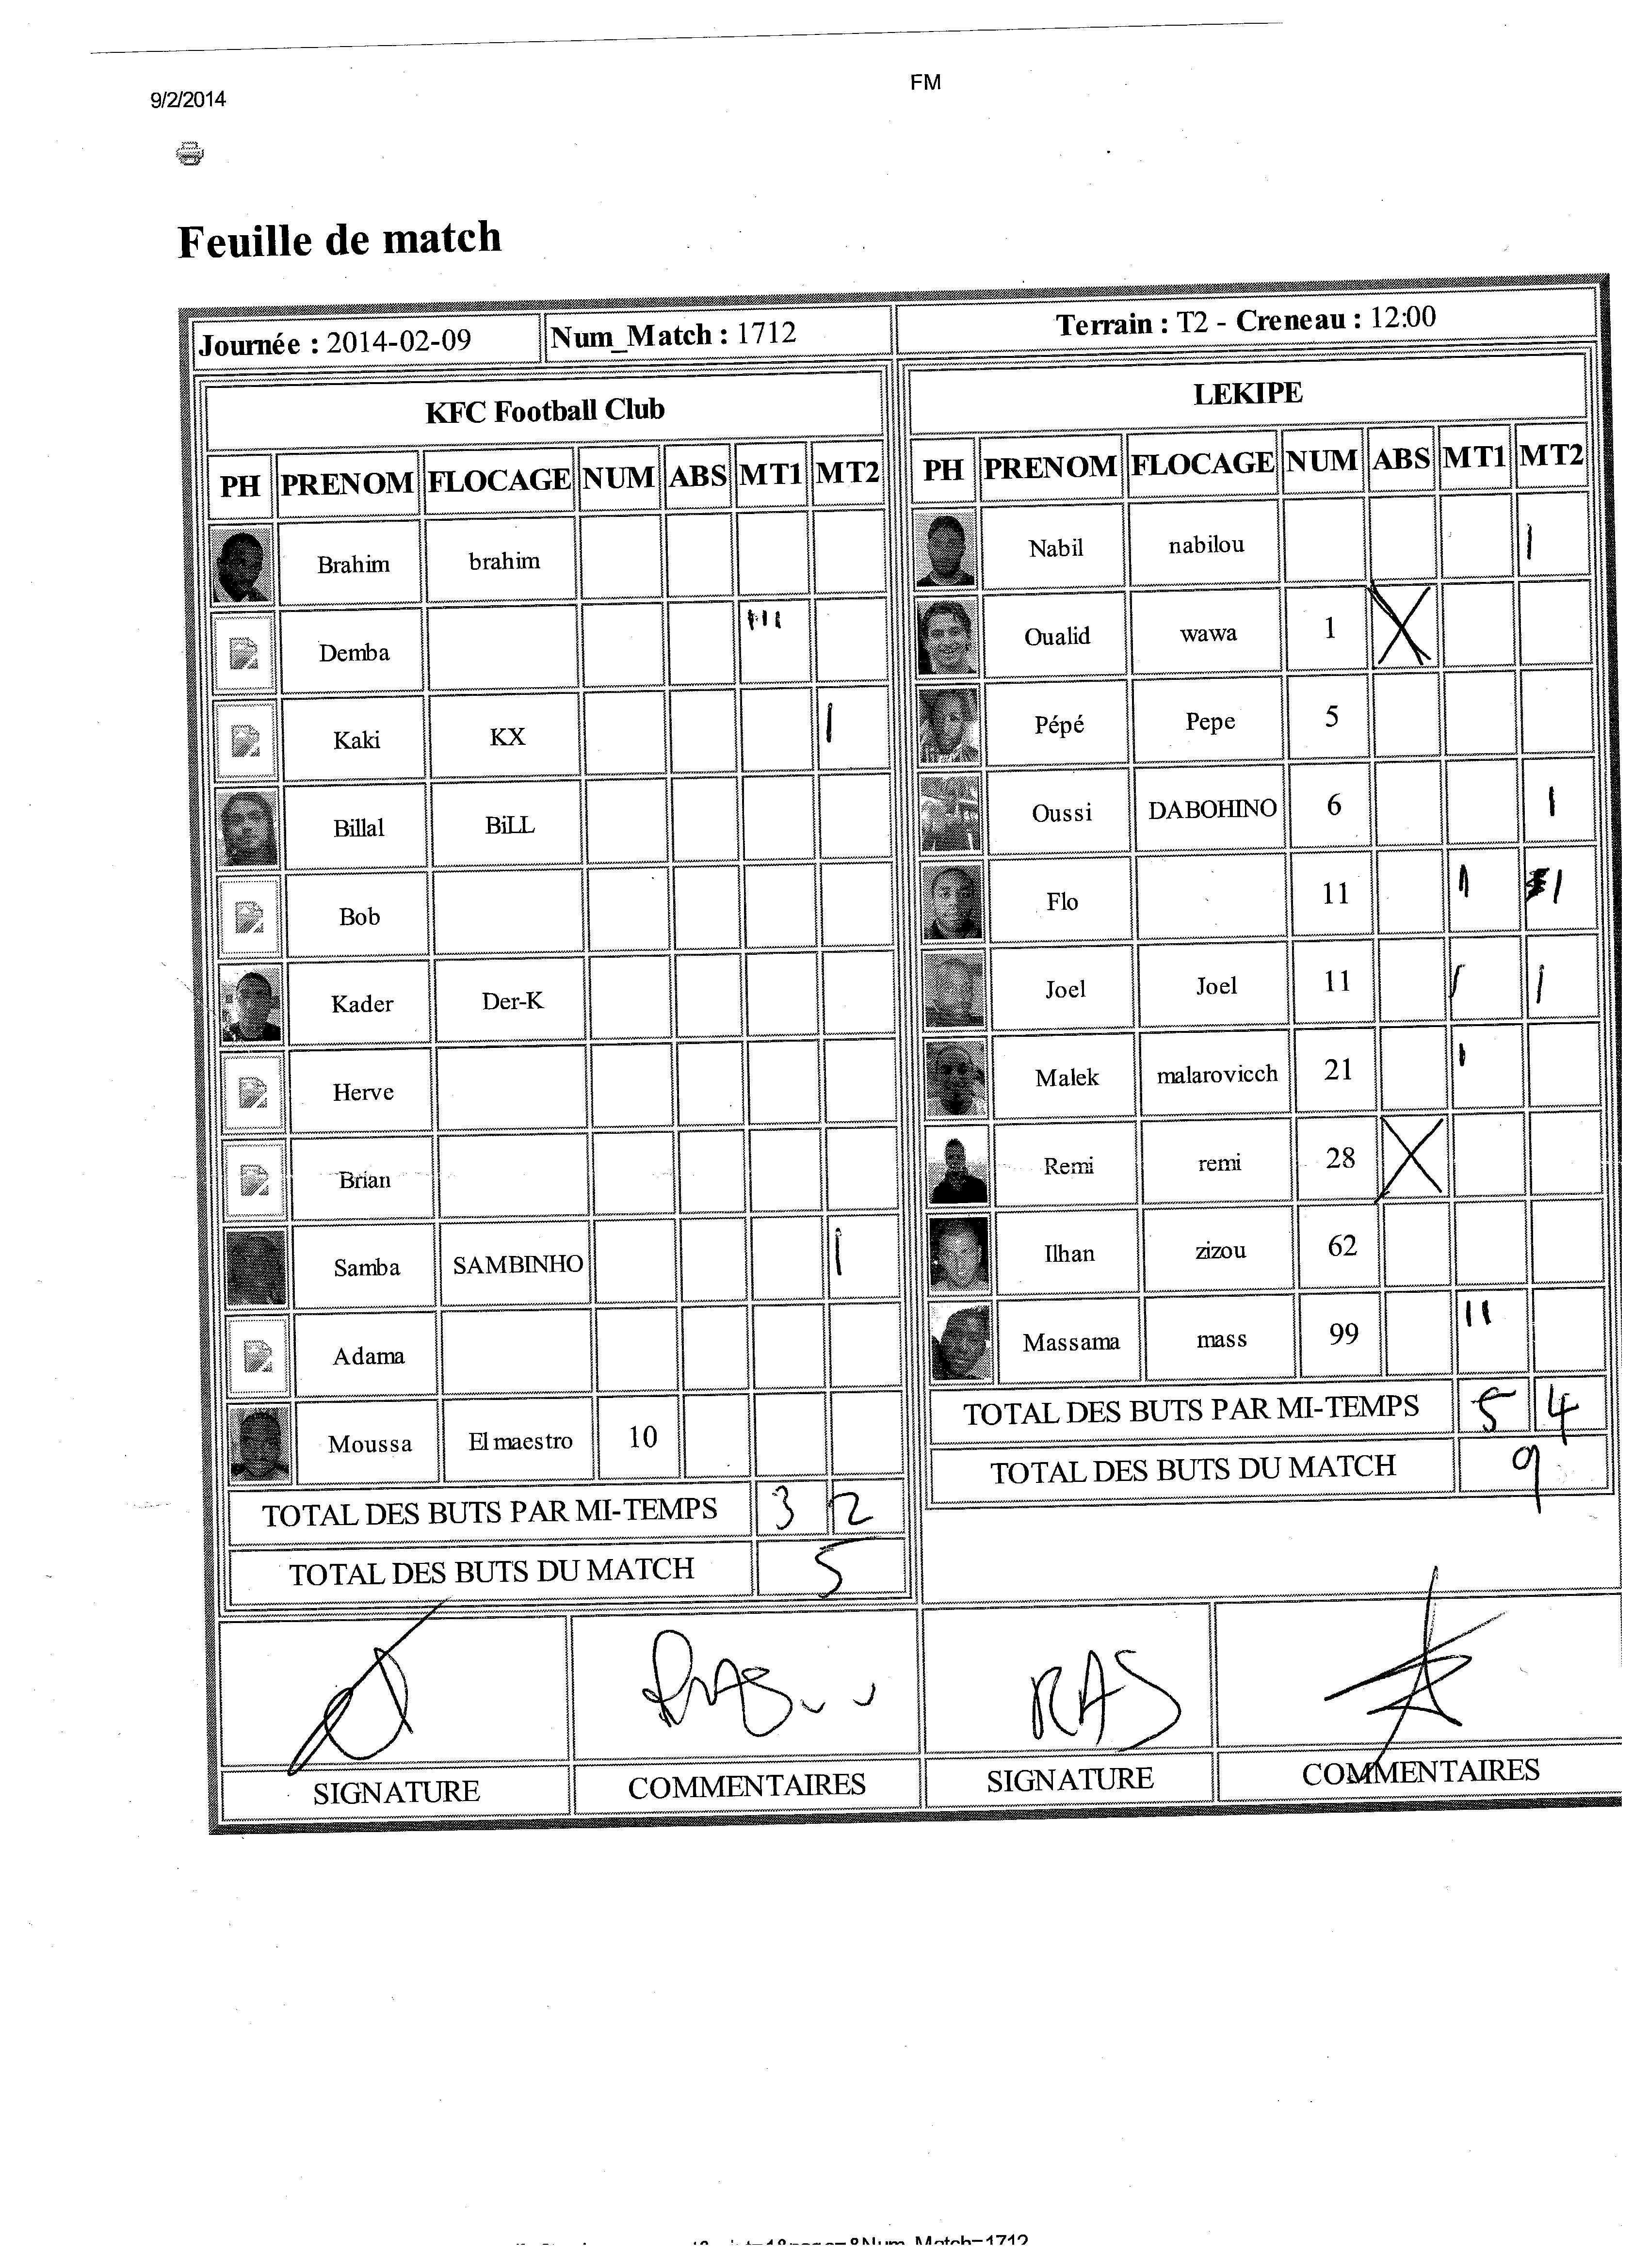 9/2/2014
FM
Feuille de match
Journée : 2014-02-09 Num_Match : 1712 Terrain : T2 - Creneau : 12:00
KFC Football Club
PH PRENOM FLOCAGE NUM ABS MT1 MT2
Brahim brahim
Demba III
Kaki KX I
Billal BiLL
Bob
Kader Der-K
Herve
Brian
Samba SAMBINHO I
Adama
Moussa El maestro 10
TOTAL DES BUTS PAR MI-TEMPS 3 2
TOTAL DES BUTS DU MATCH 5
LEKIPE
PH PRENOM FLOCAGE NUM ABS MT1 MT2
Nabil nabilou I
Oualid wawa 1 X
Pépé Pepe 5
Oussi DABOHINO 6 I
Flo 11 I I
Joel Joel 11 I I
Malek malarovicch 21 I
Remi remi 28 X
Ilhan zizou 62
Massama mass 99 II
TOTAL DES BUTS PAR MI-TEMPS 5 4
TOTAL DES BUTS DU MATCH 9
RAS
SIGNATURE COMMENTAIRES SIGNATURE COMMENTAIRES
Num_Match=1712